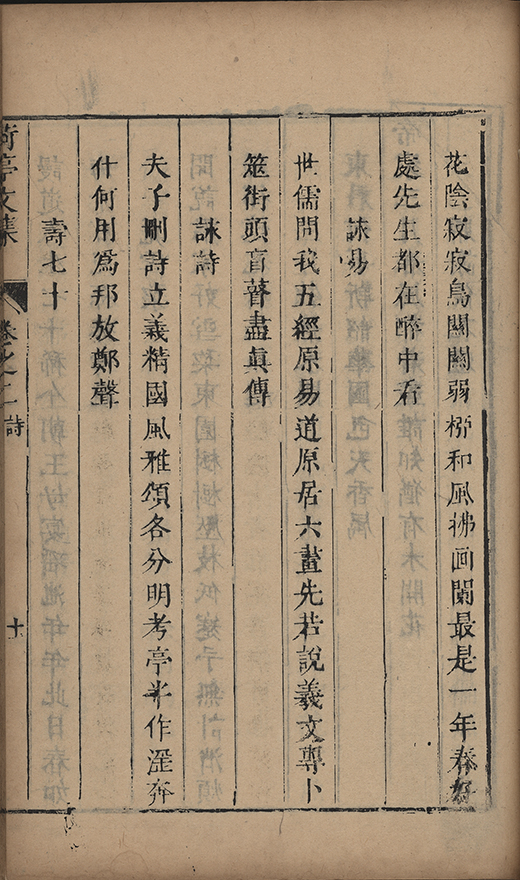 花陰寂寂鳥關關弱柳和風拂画闌最是一年春好
處先生都在醉中看
詠易
世儒問我五經原易道原居六畫先若說羲文專卜
筮街頭盲瞽盡真傳
詠詩
夫子刪詩立義精國風雅頌各分明考亭半作淫奔
什何用為邦放鄭聲
壽七十
荷亭文集 卷之二 詩 十